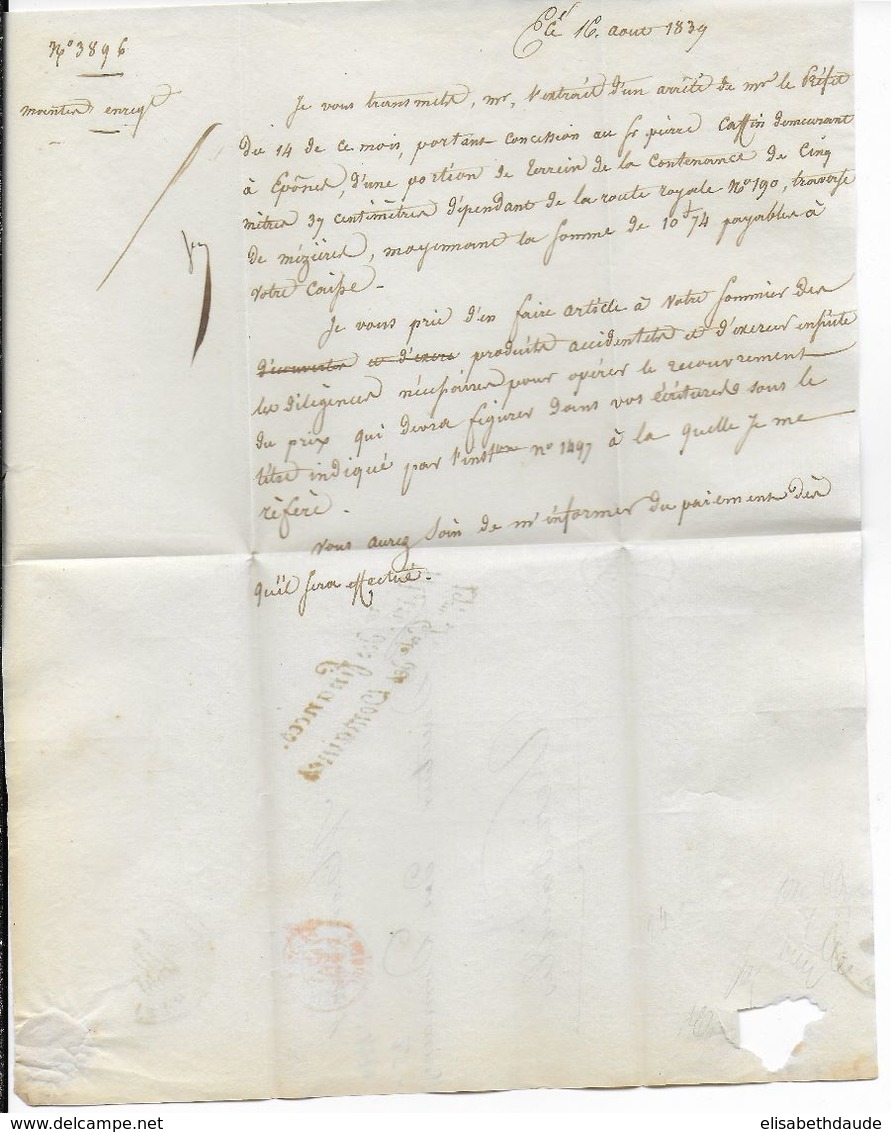 N° 3896
mantes enregt
16 aout 1839
Je vous transmets, mr, l'extrait d'un arrêté de mr le Préfet
du 14 de ce mois, portant concession au Sr pierre Caffin demeurant
à Epônes, d'une portion de terrein de la Contenance de Cinq
mètres 37 centimètres dépendant de la route royale N° 190, traverse
de mézières, moyennant la somme de 10f 74 payables à
votre caisse.
Je vous prie d'en faire article à votre sommier des
découvertes et d'exer produits accidentels et d'exercer ensuite
les diligences nécessaires pour opérer le recouvrement
du prix qui devra figurer dans vos écritures sous le
titre indiqué par l'instion n° 1497 à la quelle je me
réfère.
Vous aurez soin de m'informer du paiement dès
qu'il sera effectué.
des Domaines
des finances.
elisabethdaude